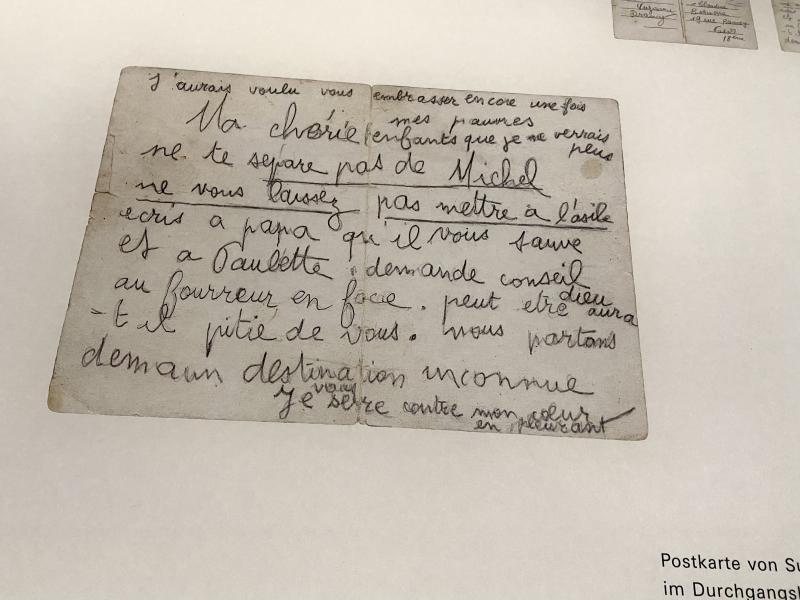 Suzanne
Drancy
Claudine
19 rue
Paris
18ème
J'aurais voulu vous embrasser encore une fois
mes pauvres
enfants que je ne verrais
plus
Ma chérie
ne te sépare pas de Michel
ne vous laissez pas mettre à l'asile
écris a papa qu'il vous sauve
et a Paulette. demande conseil
au fourreur en face. peut etre dieu aura
-t il pitié de vous. nous partons
demain destination inconnue
Je vous serre contre mon cœur
en pleurant
Postkarte von Su
im Durchgangsl